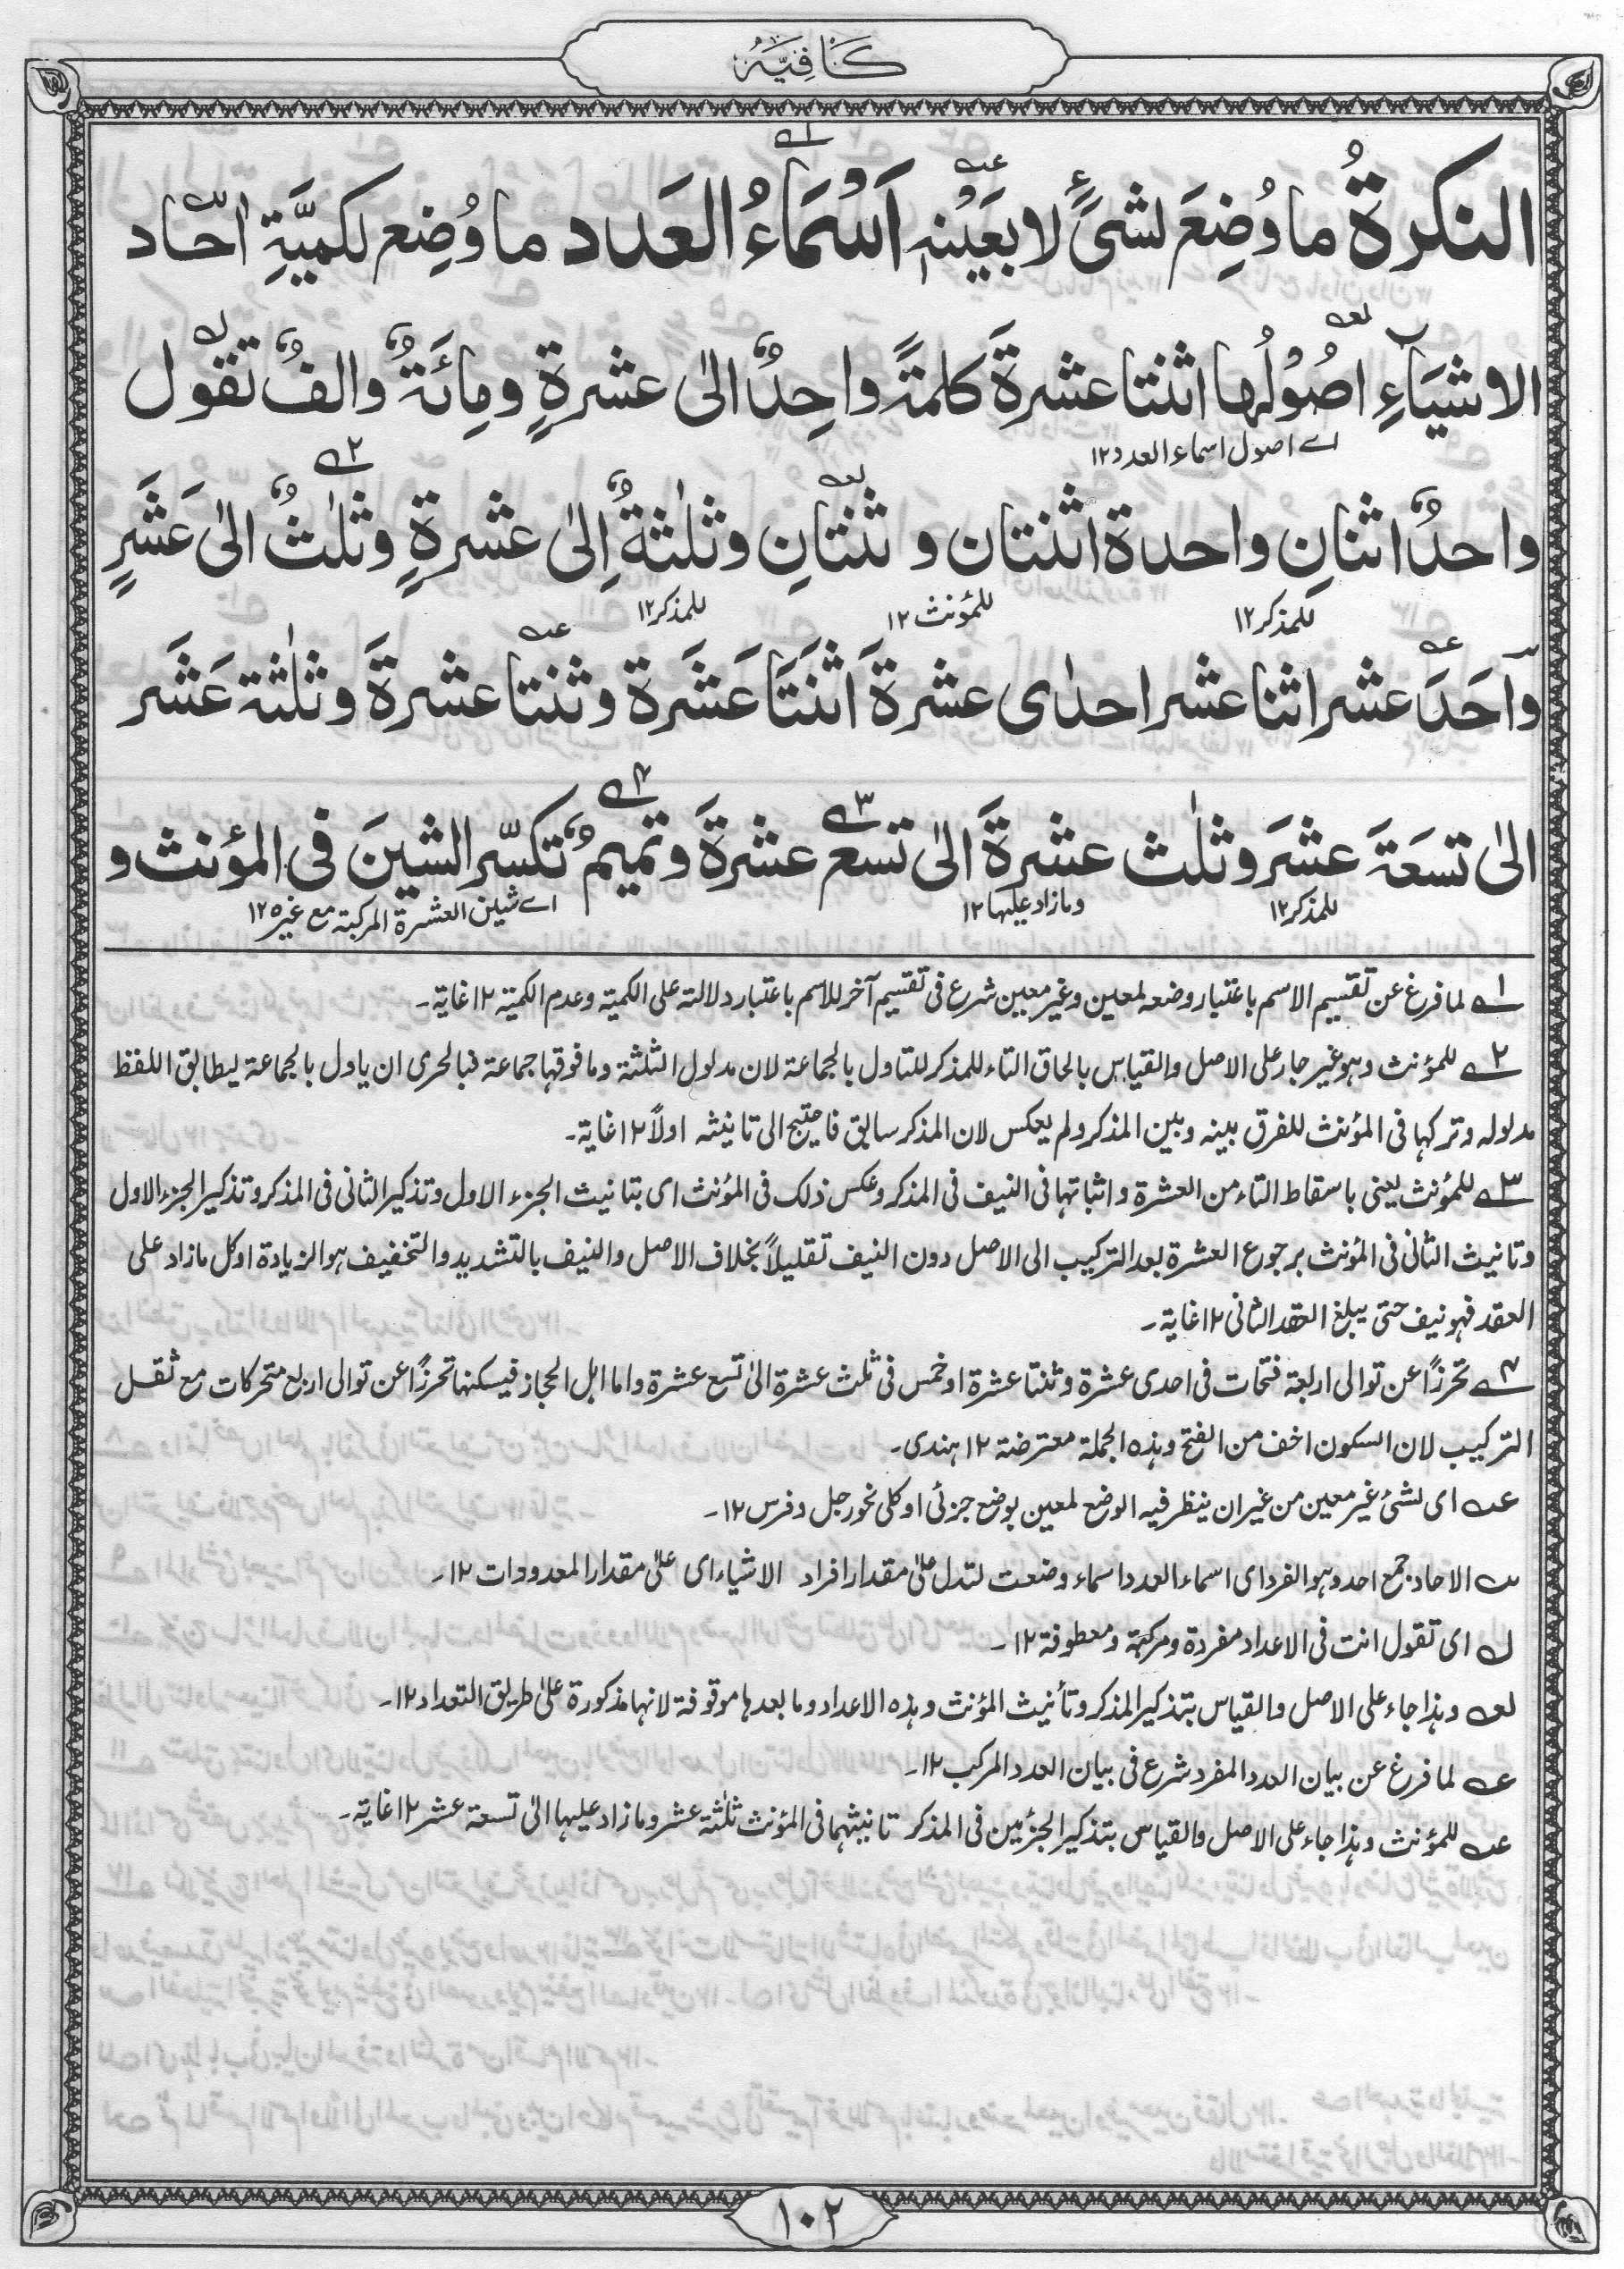 كَافِيَه
النكرةُ ما وُضِعَ لشیءٍ لا بعَيْنِہٖ اَسْمَاءُ العَدَد ما وُضِع لكميَّةِ اٰحَاد
الاشيَاءِ اصُوْلُها اثنتا عشرةَ كلمةً واحِدٌ الیٰ عشرةٍ ومِائَةٌ والفٌ تقول
اے اصول اسماء العدد١٢
واحدٌ اثنانِ واحدة اثنتان و ثنتانِ وثلٰثةٌ اِلیٰ عشرةٍ وثلٰثٌ الیٰ عَشَرٍ
للمذكر١٢ للمؤنث ١٢ للمذكر١٢
وَاَحَدَ عشر اثنا عشر احدٰی عشرةَ اثنَتَا عَشَرة وثنتا عشرةَ وثلٰثة عَشَر
الیٰ تسعَةَ عشَر وثلٰث عشرةَ الیٰ تسع عشرةَ وتميمٌ تكسّر الشينَ فی المؤنث و
للمذكر١٢ ومازاد عليها١٢ اے شين العشرة المركبة مع غيره١٢
١ـه لما فرغ عن تقسيم الاسم باعتبار وضعه لمعين وغير معين شرع فى تقسيم آخر للاسم باعتبار دلالته على الكمية وعدم الكمية ١٢ غاية۔
٢ـه للمؤنث وهو غير جار على الاصل والقياس بالحاق التاء للمذكر للتاول بالجماعة لان مدلول الثلثة وما فوقها جماعة فبالحرى ان ياول بالجماعة ليطابق اللفظ
مدلوله وتركها فى المؤنث للفرق بينه وبين المذكر ولم يعكس لان المذكر سابق فاحتيج الى تانيثه اولاً ١٢ غاية۔
٣ـه للمؤنث يعنى باسقاط التاء من العشرة واثباتها فى النيف فى المذكر وعكس ذلك فى المؤنث اى بتانيث الجزء الاول وتذكير الثانى فى المذكر وتذكير الجزء الاول
وتانيث الثانى فى المؤنث برجوع العشرة بعد التركيب الى الاصل دون النيف تقليلاً بخلاف الاصل والنيف بالتشديد والتخفيف هو الزيادة او كل مازاد على
العقد فهو نيف حتى يبلغ العقد الثانى ١٢ غاية۔
٤ـه تحرزًا عن توالى اربعة فتحات فى احدى عشرة وثنتا عشرة او خمس فى ثلث عشرة الىٰ تسع عشرة واما اهل الحجاز فيسكنها تحرزًا عن توالى اربع متحركات مع ثقل
التركيب لان السكون اخف من الفتح وهذه الجملة معترضة ١٢ ہندی۔
عـه اى لشئ غير معين من غير ان ينظر فيه الوضع لمعين بوضع جزئى او كلى نحو رجل وفرس ١٢۔
سـه الاحاد جمع احد وهو الفرد اى اسماء العدد اسماء وضعت لتدل علىٰ مقدار افراد الاشياء اى علىٰ مقدار المعدودات ١٢۔
لـه اى تقول انت فى الاعداد مفردة ومركبة ومعطوفة ١٢۔
لعـه وهذا جاء على الاصل والقياس بتذكير المذكر وتأنيث المؤنث وهذه الاعداد وما بعدها موقوفة لانها مذكورة علىٰ طريق التعداد ١٢۔
عـه لما فرغ عن بيان العدد المفرد شرع فى بيان العدد المركب ١٢۔
عـه للمؤنث وهذا جاء على الاصل والقياس بتذكير الجزئين فى المذكر تانيثهما فى المؤنث ثلٰثة عشر ومازاد عليها الىٰ تسعة عشر ١٢ غاية۔
١٠٢